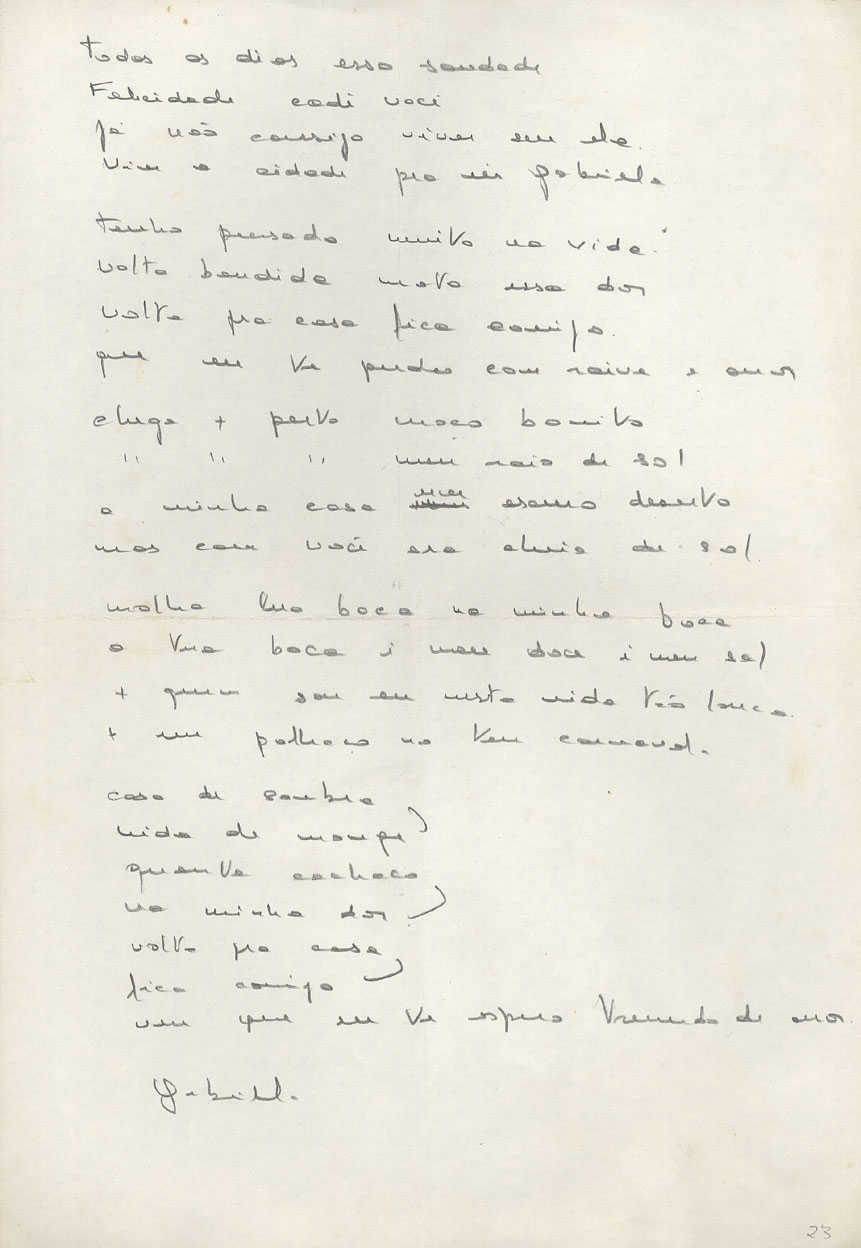 todos os dias essa saudade
Felicidade cadê você
já não consigo viver sem ela
vim a cidade pra ver Gabriela
tenho pensado muito na vida
volta bandida mata essa dor
volta pra casa fica comigo.
que eu te perdoo com raiva e amor
chega + perto moço bonito
" " " meu raio de sol
a minha casa sem escuro deserto
mas com você era cheia de sol.
molha tua boca na minha boca
a tua boca é meu doce é meu sal
+ quem sou eu nesta vida tão louca.
+ um palhaço no teu carnaval.
casa de sombra
vida de monge
quanta cachaça
na minha dor
volta pra casa
fica comigo
vem que eu te espero tremendo de amor.
Gabriela.
23